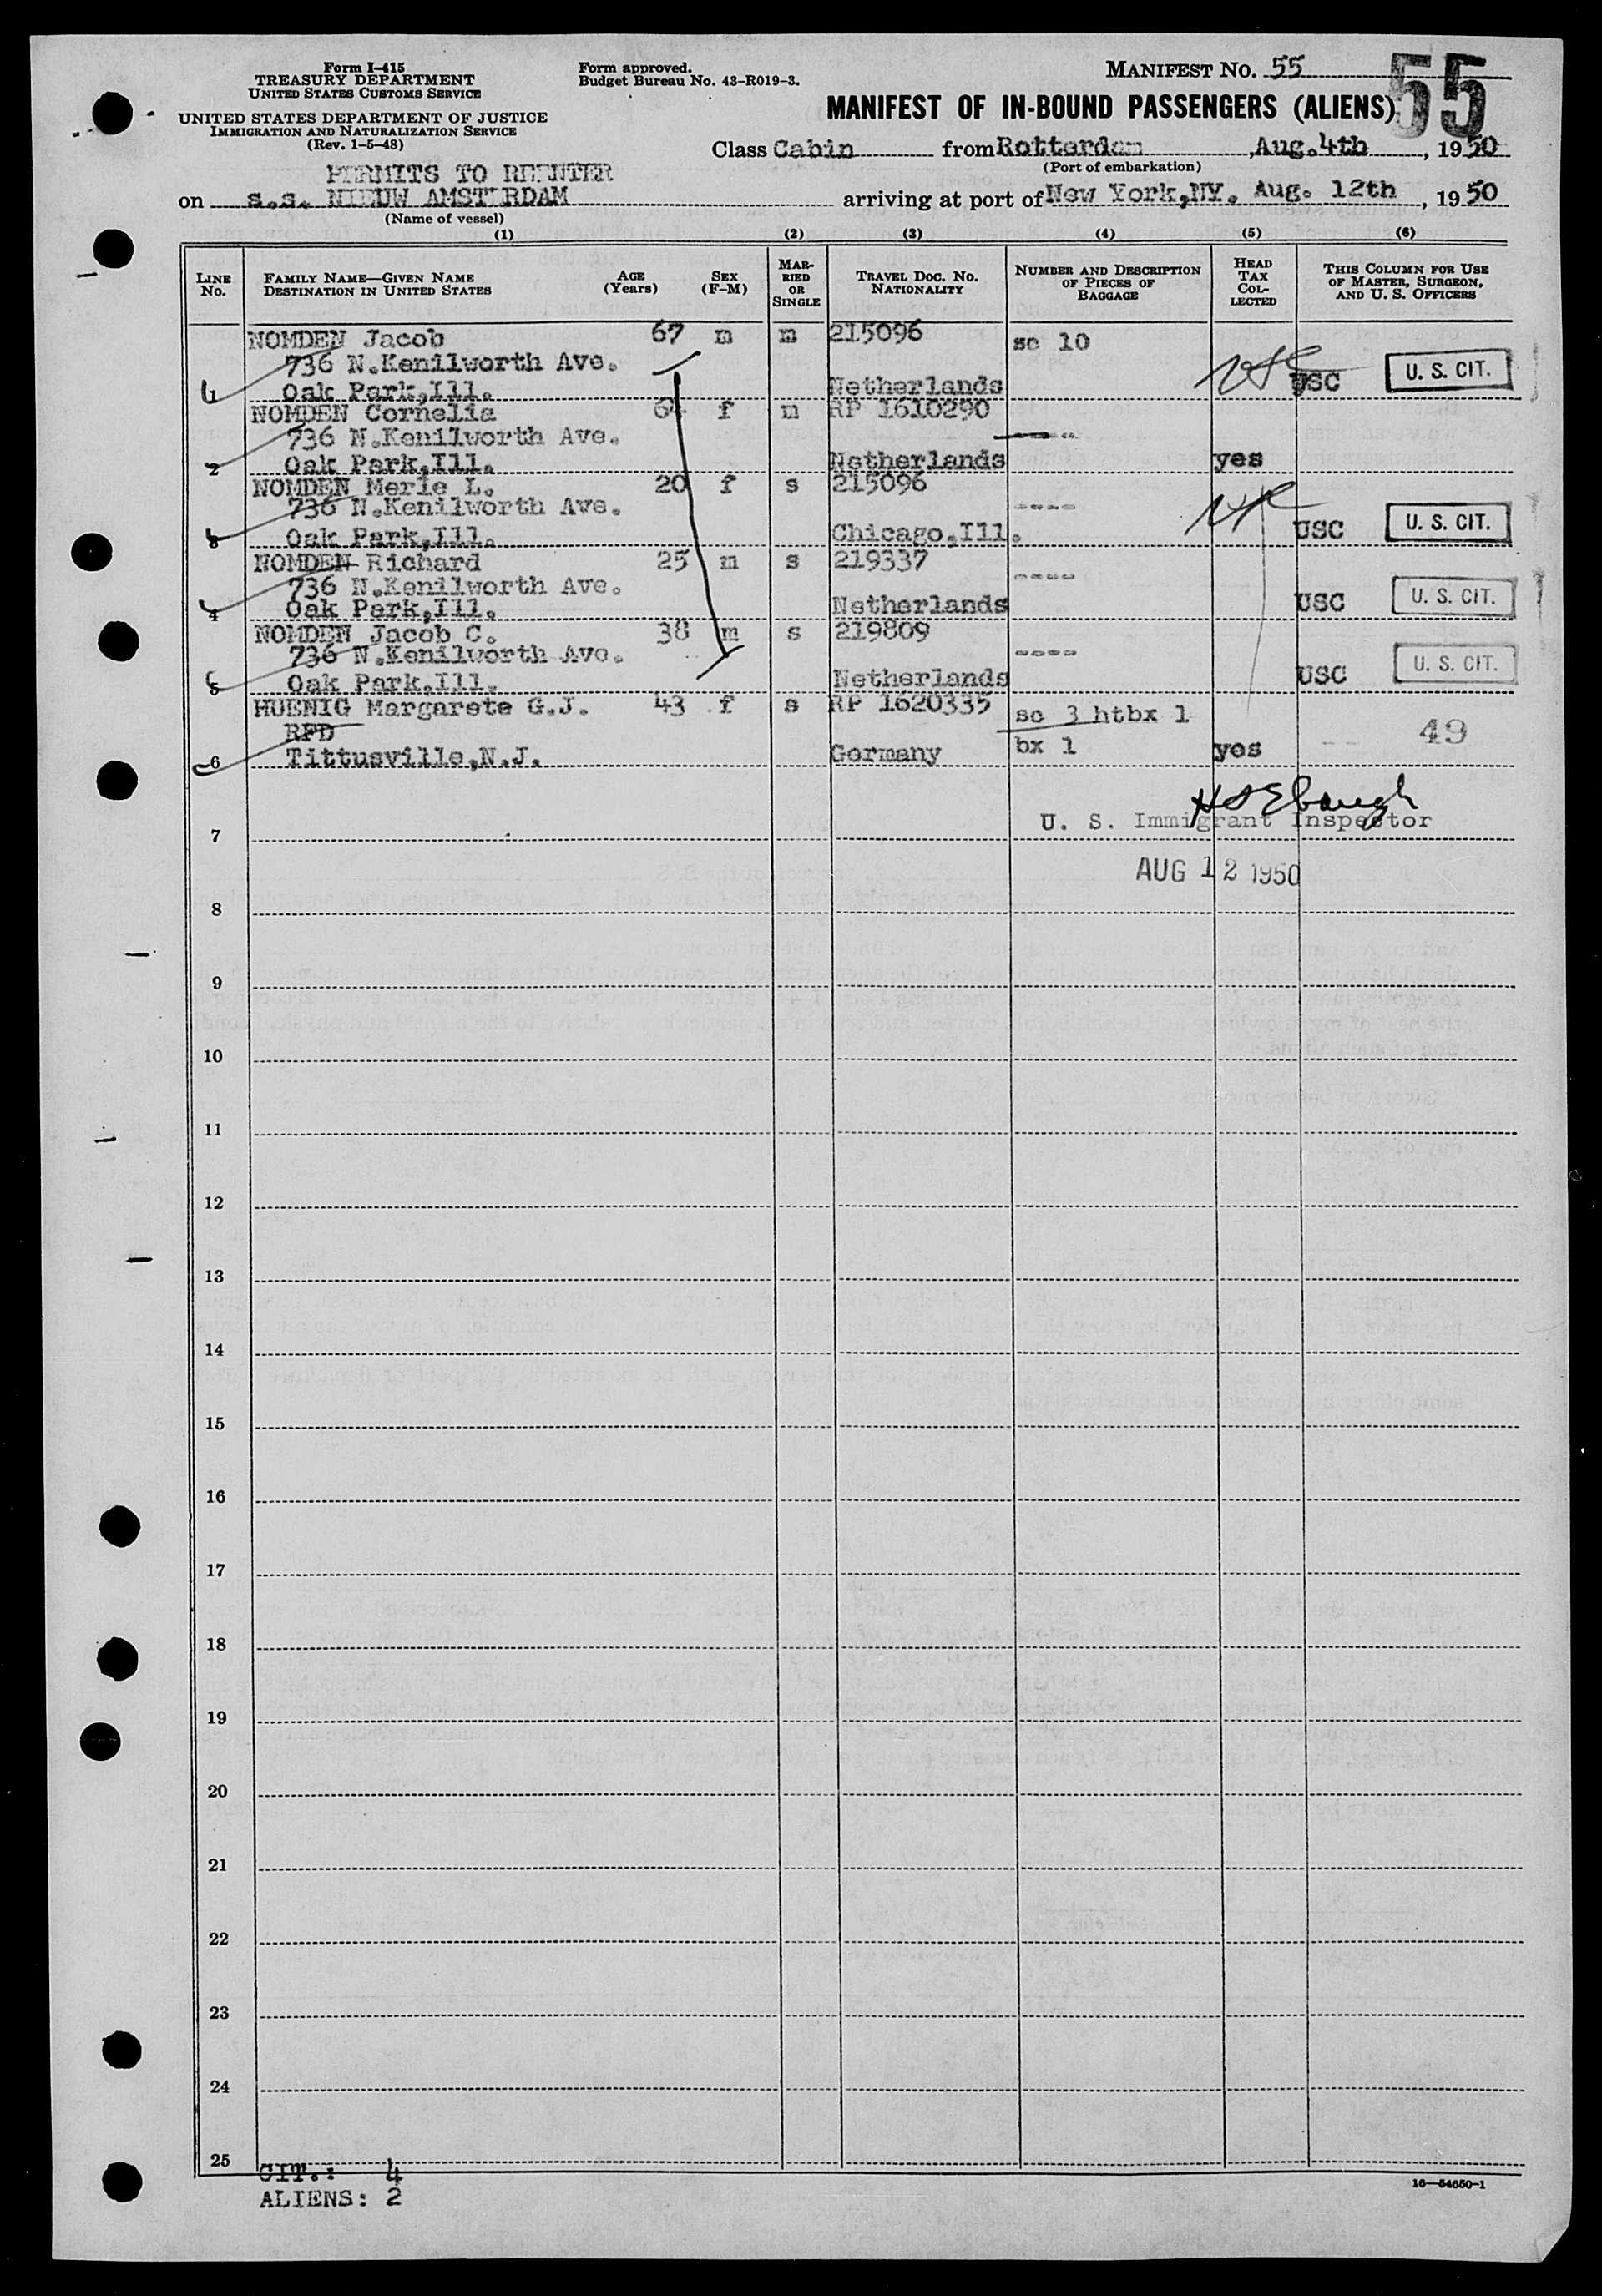 Form I-415
TREASURY DEPARTMENT
UNITED STATES CUSTOMS SERVICE
UNITED STATES DEPARTMENT OF JUSTICE
IMMIGRATION AND NATURALIZATION SERVICE
(Rev. 1-5-48)
Form approved.
Budget Bureau No. 43-R019-3.
MANIFEST NO. 55
55
MANIFEST OF IN-BOUND PASSENGERS (ALIENS)
Class Cabin from Rotterdam, Aug. 4th, 1950
(Port of embarkation)
PERMITS TO REENTER
on s.s. NIEUW AMSTERDAM arriving at port of New York, NY. Aug. 12th, 1950
(Name of vessel)
(1) (2) (3) (4) (5) (6)
LINE No. FAMILY NAME—GIVEN NAME DESTINATION IN UNITED STATES AGE (Years) SEX (F-M) MARRIED OR SINGLE TRAVEL DOC. NO. NATIONALITY NUMBER AND DESCRIPTION OF PIECES OF BAGGAGE HEAD TAX COLLECTED THIS COLUMN FOR USE OF MASTER, SURGEON, AND U. S. OFFICERS
NOMDEN Jacob 67 m m 215096 sc 10
736 N.Kenilworth Ave.
1 Oak Park,Ill. Netherlands USC U. S. CIT.
NOMDEN Cornelia 64 f m RP 1610290
736 N.Kenilworth Ave. ----
2 Oak Park,Ill. Netherlands yes
NOMDEN Merle L. 20 f s 215096
736 N.Kenilworth Ave. ----
3 Oak Park,Ill. Chicago,Ill. USC U. S. CIT.
NOMDEN Richard 25 m s 219337
736 N.Kenilworth Ave. ----
4 Oak Park,Ill. Netherlands USC U. S. CIT.
NOMDEN Jacob C. 38 m s 219809
736 N.Kenilworth Ave. ----
5 Oak Park,Ill. Netherlands USC U. S. CIT.
HUENIG Margarete G.J. 43 f s RP 1620335 sc 3 htbx 1
RFD bx 1 49
6 Tittusville,N.J. Germany yes
H S Ebaugh
U. S. Immigrant Inspector
7
AUG 12 1950
8
9
10
11
12
13
14
15
16
17
18
19
20
21
22
23
24
25
CIT.: 4
ALIENS: 2
16—54650-1